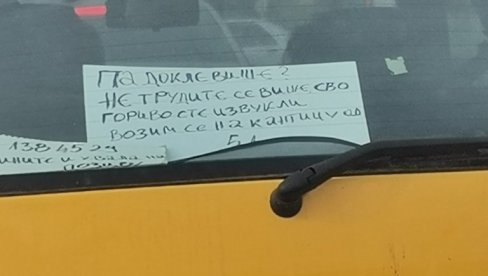 ПА ДОКЛЕ ВИШЕ?
НЕ ТРУДИТЕ СЕ ВИШЕ, СВО
ГОРИВО СТЕ ИЗВУКЛИ
ВОЗИМ СЕ НА КАНТИЦУ ОД
5 Л
1384529